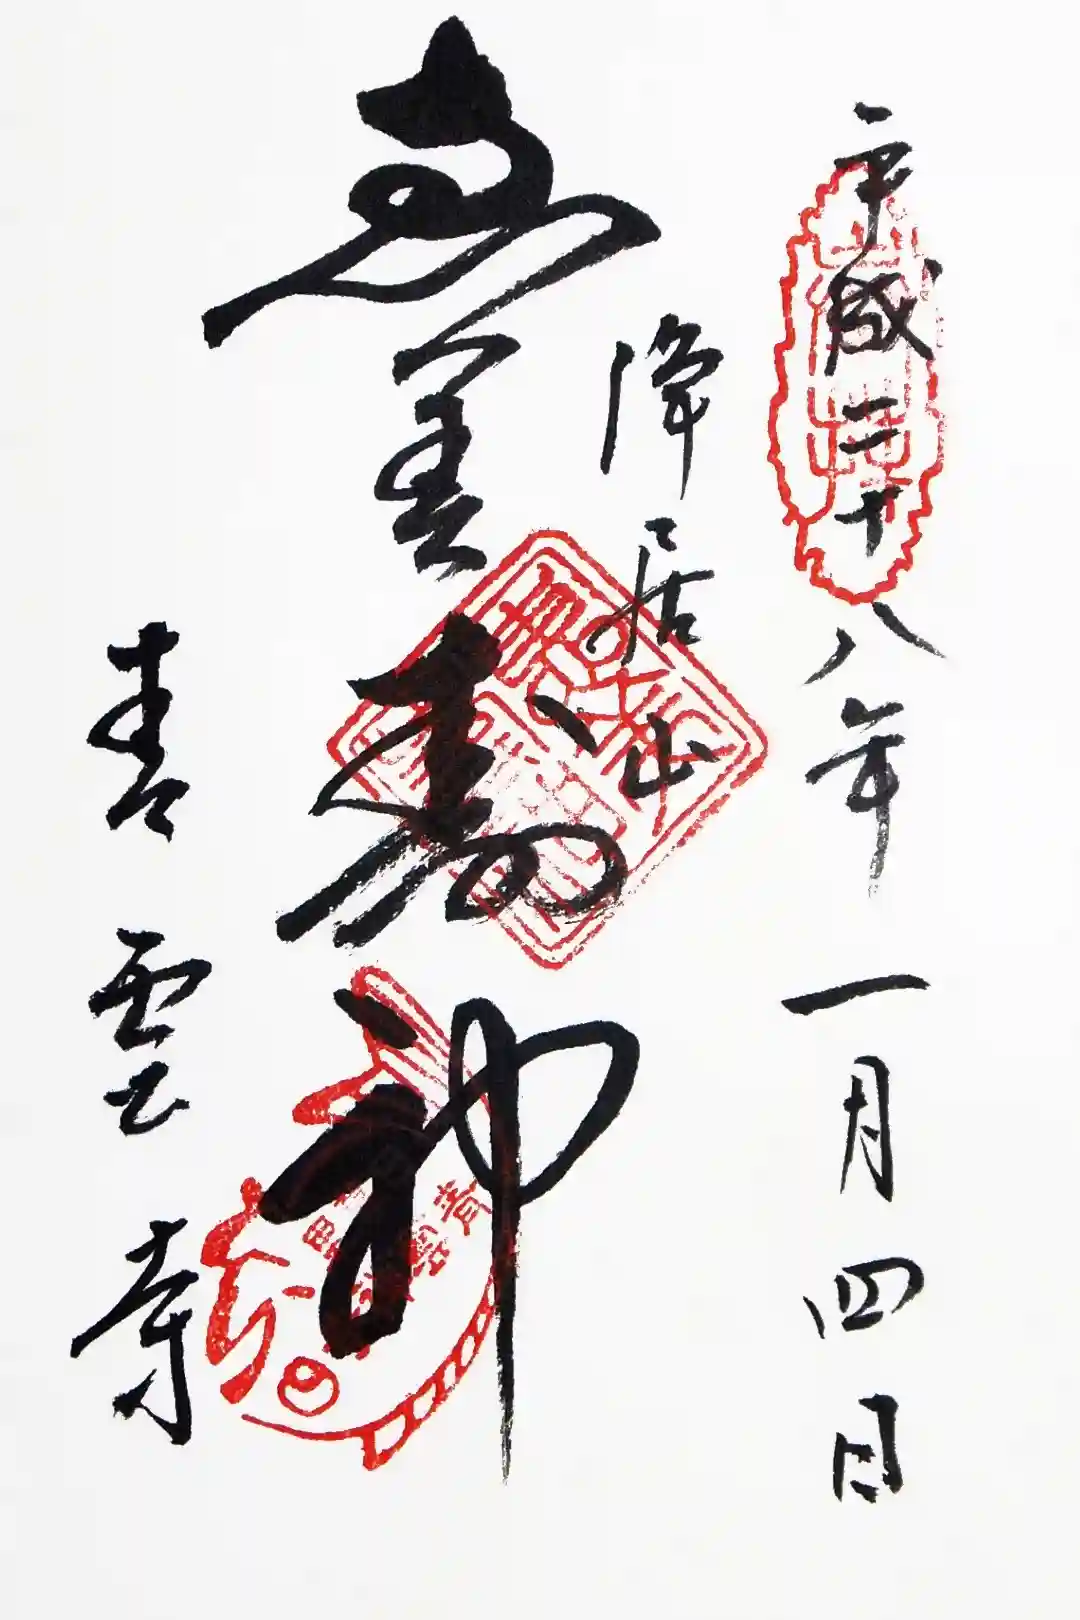 平成二十八年一月四日
浄居山
恵美壽神
青雲寺